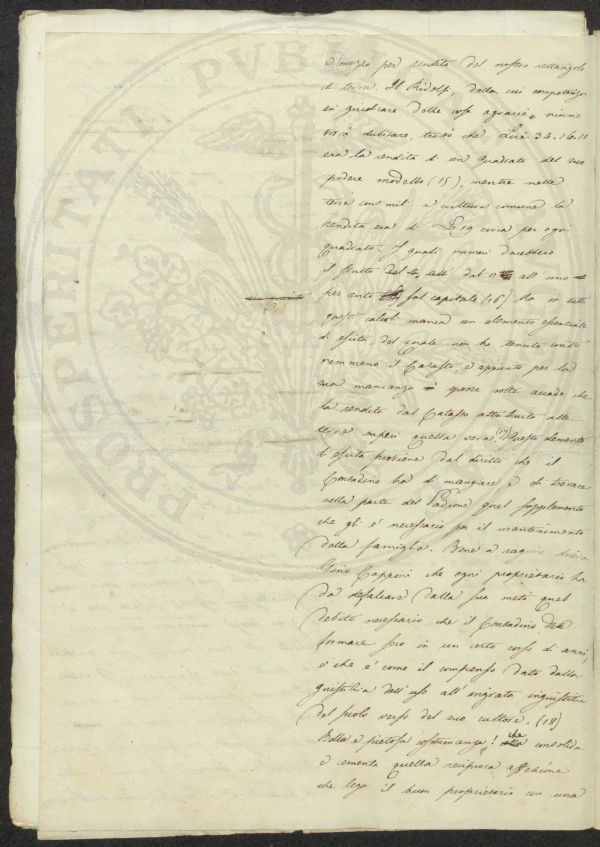 e mezzo per rendita del nostro rettangolo
di terra. Il Ridolfi, della cui competenza
in giudicare delle cose agrarie, niuno
vorrà dubitare, trovò che Lire 34.16.11
era la rendita di un quadrato del suo
podere modello (15), mentre nelle
terre consimili a cultura comune la
rendita era di £ 19 circa per ogni
quadrato. I quali numeri darebbero
il frutto dal all'uno
per cento sul capitale (16). Ma in tutti
questi calcoli manca un elemento essenziale
di esito, del quale non ha tenuto conto
nemmeno il Catasto, e appunto per la
sua mancanza spesse volte accade che
la rendita dal Catasto attribuita alle
terre superi quella vera. (17) Questo elemento
di esito proviene dal diritto che il
Contadino ha di mangiare, e di trovare
nella parte del Padrone quel supplemento
che gli è necessario per il mantenimento
della famiglia. Bene a ragione diceva
Gino Capponi che ogni proprietario ha
da defalcare dalla sua metà quel
debito necessario che il Contadino dee
formare seco in un certo corso di anni,
e che è come il compenso dato dalla
giustizia dell'uso all'ingrata ingiustizia
del suolo verso del suo cultore. (18)
Bella e pietosa costumanza! che consolida
e cementa quella reciproca affezione
che lega il buon proprietario con una